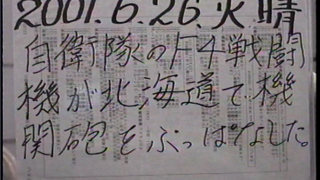 2001.6.26.火晴
自衛隊のF4戦闘
機が北海道で機
関砲をぶっぱなした。